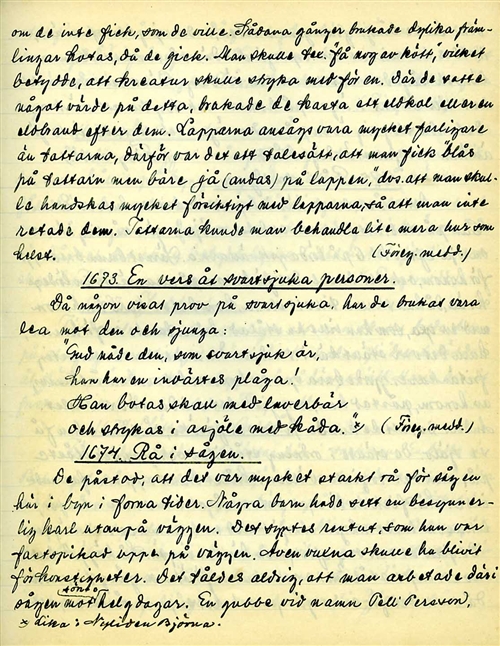 om de inte fick, som de ville. Sådana gånger brukade dylika främ-
lingar hotas, då de gick. Man skulle tex. "få nog av kött", vilket
betydde, att kreatur skulle stryka med för en. Där de satte
något värde på detta, brukade de kasta ett eldkol eller en
eldbrand efter dem. Lapparna ansågs vara mycket farligare
än tattarna, därför var det ett talesätt, att man fick "blås
på tattarn men bäre gå (andas) på lappen," dvs. att man skul-
le handskas mycket försiktigt med lapparna, så att man inte
retade dem. Tattarna kunde man behandla lite mera hur som
helst. (Föreg. medd.)
1673. En vers åt svartsjuka personer.
Då någon visat prov på svartsjuka, har de brukat vara
lea mot den och sjunga:
"Gud nåde den, som svartsjuk är,
han har en invärtes plåga!
Han botas skall med enverbär
och strykas i asjöle med kåda." x (Föreg. medd.)
1674. Rå i sågen.
De påstod, att det var mycket starkt rå för sågen
här i byn i forna tider. Några barn hade sett en besynner-
lig karl utanpå väggen. Det syntes rentut, som han var
fastspikad uppe på väggen. Även vuxna skulle ha blivit
för konstigheter. Det tåldes aldrig, att man arbetade där i
sågen mot helgdagar. En gubbe vid namn Pell Persson,
x lika: Nylisen Björna.